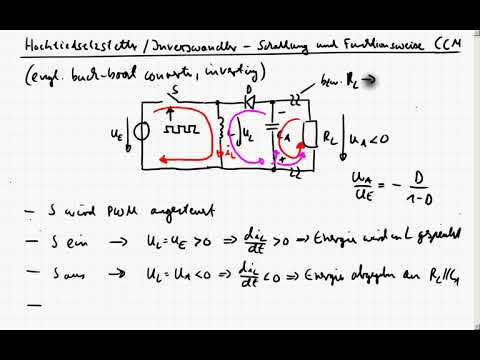 Hochtiefsetzsteller / Inverswandler – Schaltung und Funktionsweise CCM
(engl. buck-boost converter, inverting)
bzw. R_L →
S D
U_E i_L U_L C_A R_L U_A<0
U_A/U_E = - D/(1-D)
– S wird PWM angesteuert
– S ein → U_L = U_E > 0 ⇒ di_L/dt > 0 ⇒ Energie wird in L gespeichert
– S aus → U_L = U_A < 0 ⇒ di_L/dt < 0 ⇒ Energie abgegeben an R_L//C_A
–